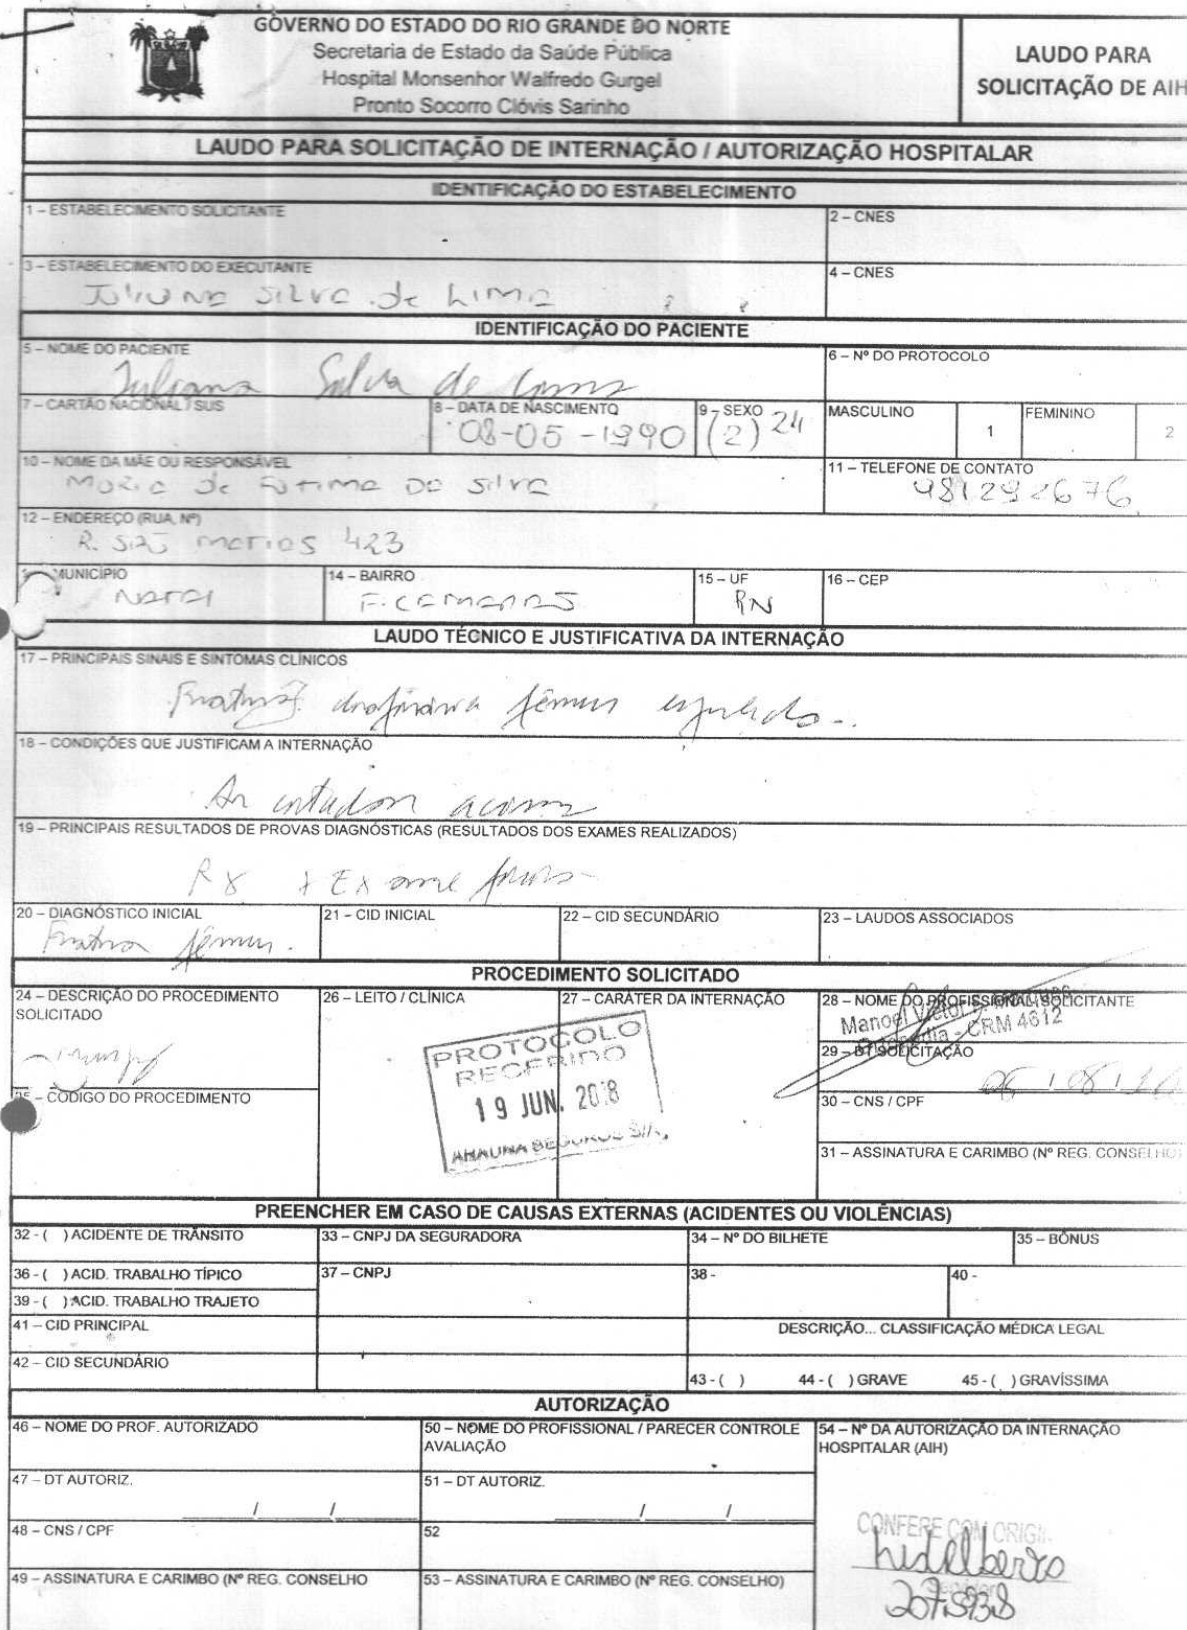 GOVERNO DO ESTADO DO RIO GRANDE DO NORTE
Secretaria de Estado da Saúde Pública
Hospital Monsenhor Walfredo Gurgel
Pronto Socorro Clóvis Sarinho
LAUDO PARA
SOLICITAÇÃO DE AIH
LAUDO PARA SOLICITAÇÃO DE INTERNAÇÃO / AUTORIZAÇÃO HOSPITALAR
IDENTIFICAÇÃO DO ESTABELECIMENTO
1 – ESTABELECIMENTO SOLICITANTE
2 – CNES
3 – ESTABELECIMENTO DO EXECUTANTE
4 – CNES
Juliana Silva de Lima
IDENTIFICAÇÃO DO PACIENTE
5 – NOME DO PACIENTE
6 – Nº DO PROTOCOLO
Juliana Silva de Lima
7 – CARTÃO NACIONAL / SUS
8 – DATA DE NASCIMENTO
08-05-1990
9 – SEXO
(2) 24
MASCULINO 1 FEMININO 2
10 – NOME DA MÃE OU RESPONSÁVEL
Maria de Fatima da Silva
11 – TELEFONE DE CONTATO
981292676
12 – ENDEREÇO (RUA, Nº)
R. São Matias 423
MUNICÍPIO
Natal
14 – BAIRRO
F. Camarão
15 – UF
RN
16 – CEP
LAUDO TÉCNICO E JUSTIFICATIVA DA INTERNAÇÃO
17 – PRINCIPAIS SINAIS E SINTOMAS CLÍNICOS
Fratura diafisária fêmur esquerdo
18 – CONDIÇÕES QUE JUSTIFICAM A INTERNAÇÃO
acima
19 – PRINCIPAIS RESULTADOS DE PROVAS DIAGNÓSTICAS (RESULTADOS DOS EXAMES REALIZADOS)
RX + Exame físico
20 – DIAGNÓSTICO INICIAL
Fratura fêmur.
21 - CID INICIAL
22 – CID SECUNDÁRIO
23 – LAUDOS ASSOCIADOS
PROCEDIMENTO SOLICITADO
24 – DESCRIÇÃO DO PROCEDIMENTO
SOLICITADO
26 – LEITO / CLÍNICA
27 – CARATER DA INTERNAÇÃO
28 – NOME DO PROFISSIONAL SOLICITANTE
Manoel
CRM 4612
29 – DT SOLICITAÇÃO
PROTOCOLO
RECEBIDO
19 JUN. 2018
SEGUROS S/A
25 – CÓDIGO DO PROCEDIMENTO
30 – CNS / CPF
31 – ASSINATURA E CARIMBO (Nº REG. CONSELHO)
PREENCHER EM CASO DE CAUSAS EXTERNAS (ACIDENTES OU VIOLÊNCIAS)
32 - ( ) ACIDENTE DE TRÂNSITO
33 – CNPJ DA SEGURADORA
34 – Nº DO BILHETE
35 – BÔNUS
36 - ( ) ACID. TRABALHO TÍPICO
37 – CNPJ
38 -
40 -
39 - ( ) ACID. TRABALHO TRAJETO
41 – CID PRINCIPAL
DESCRIÇÃO... CLASSIFICAÇÃO MÉDICA LEGAL
42 – CID SECUNDÁRIO
43 - ( ) 44 - ( ) GRAVE 45 - ( ) GRAVÍSSIMA
AUTORIZAÇÃO
46 – NOME DO PROF. AUTORIZADO
50 – NOME DO PROFISSIONAL / PARECER CONTROLE
AVALIAÇÃO
54 – Nº DA AUTORIZAÇÃO DA INTERNAÇÃO
HOSPITALAR (AIH)
47 – DT AUTORIZ.
/ /
51 – DT AUTORIZ.
/ /
48 – CNS / CPF
52
49 – ASSINATURA E CARIMBO (Nº REG. CONSELHO
53 – ASSINATURA E CARIMBO (Nº REG. CONSELHO)
CONFERE COM ORIGI.
Servidor
207.593.8